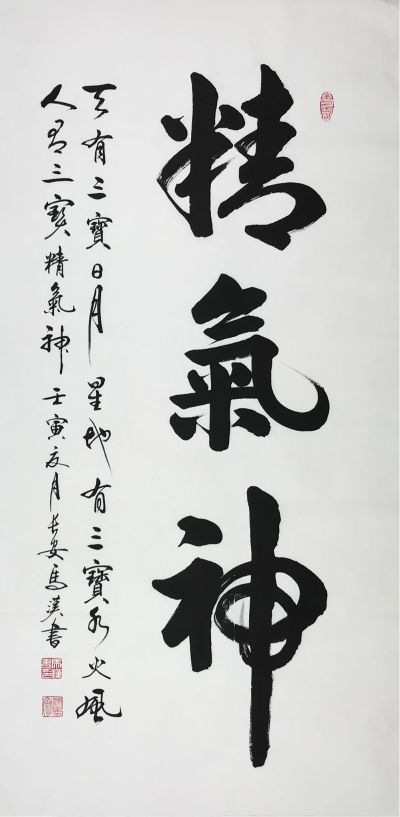 精氣神
天有三寶日月星地有三寶水火風
人有三寶精氣神壬寅夏月長安馬漢書